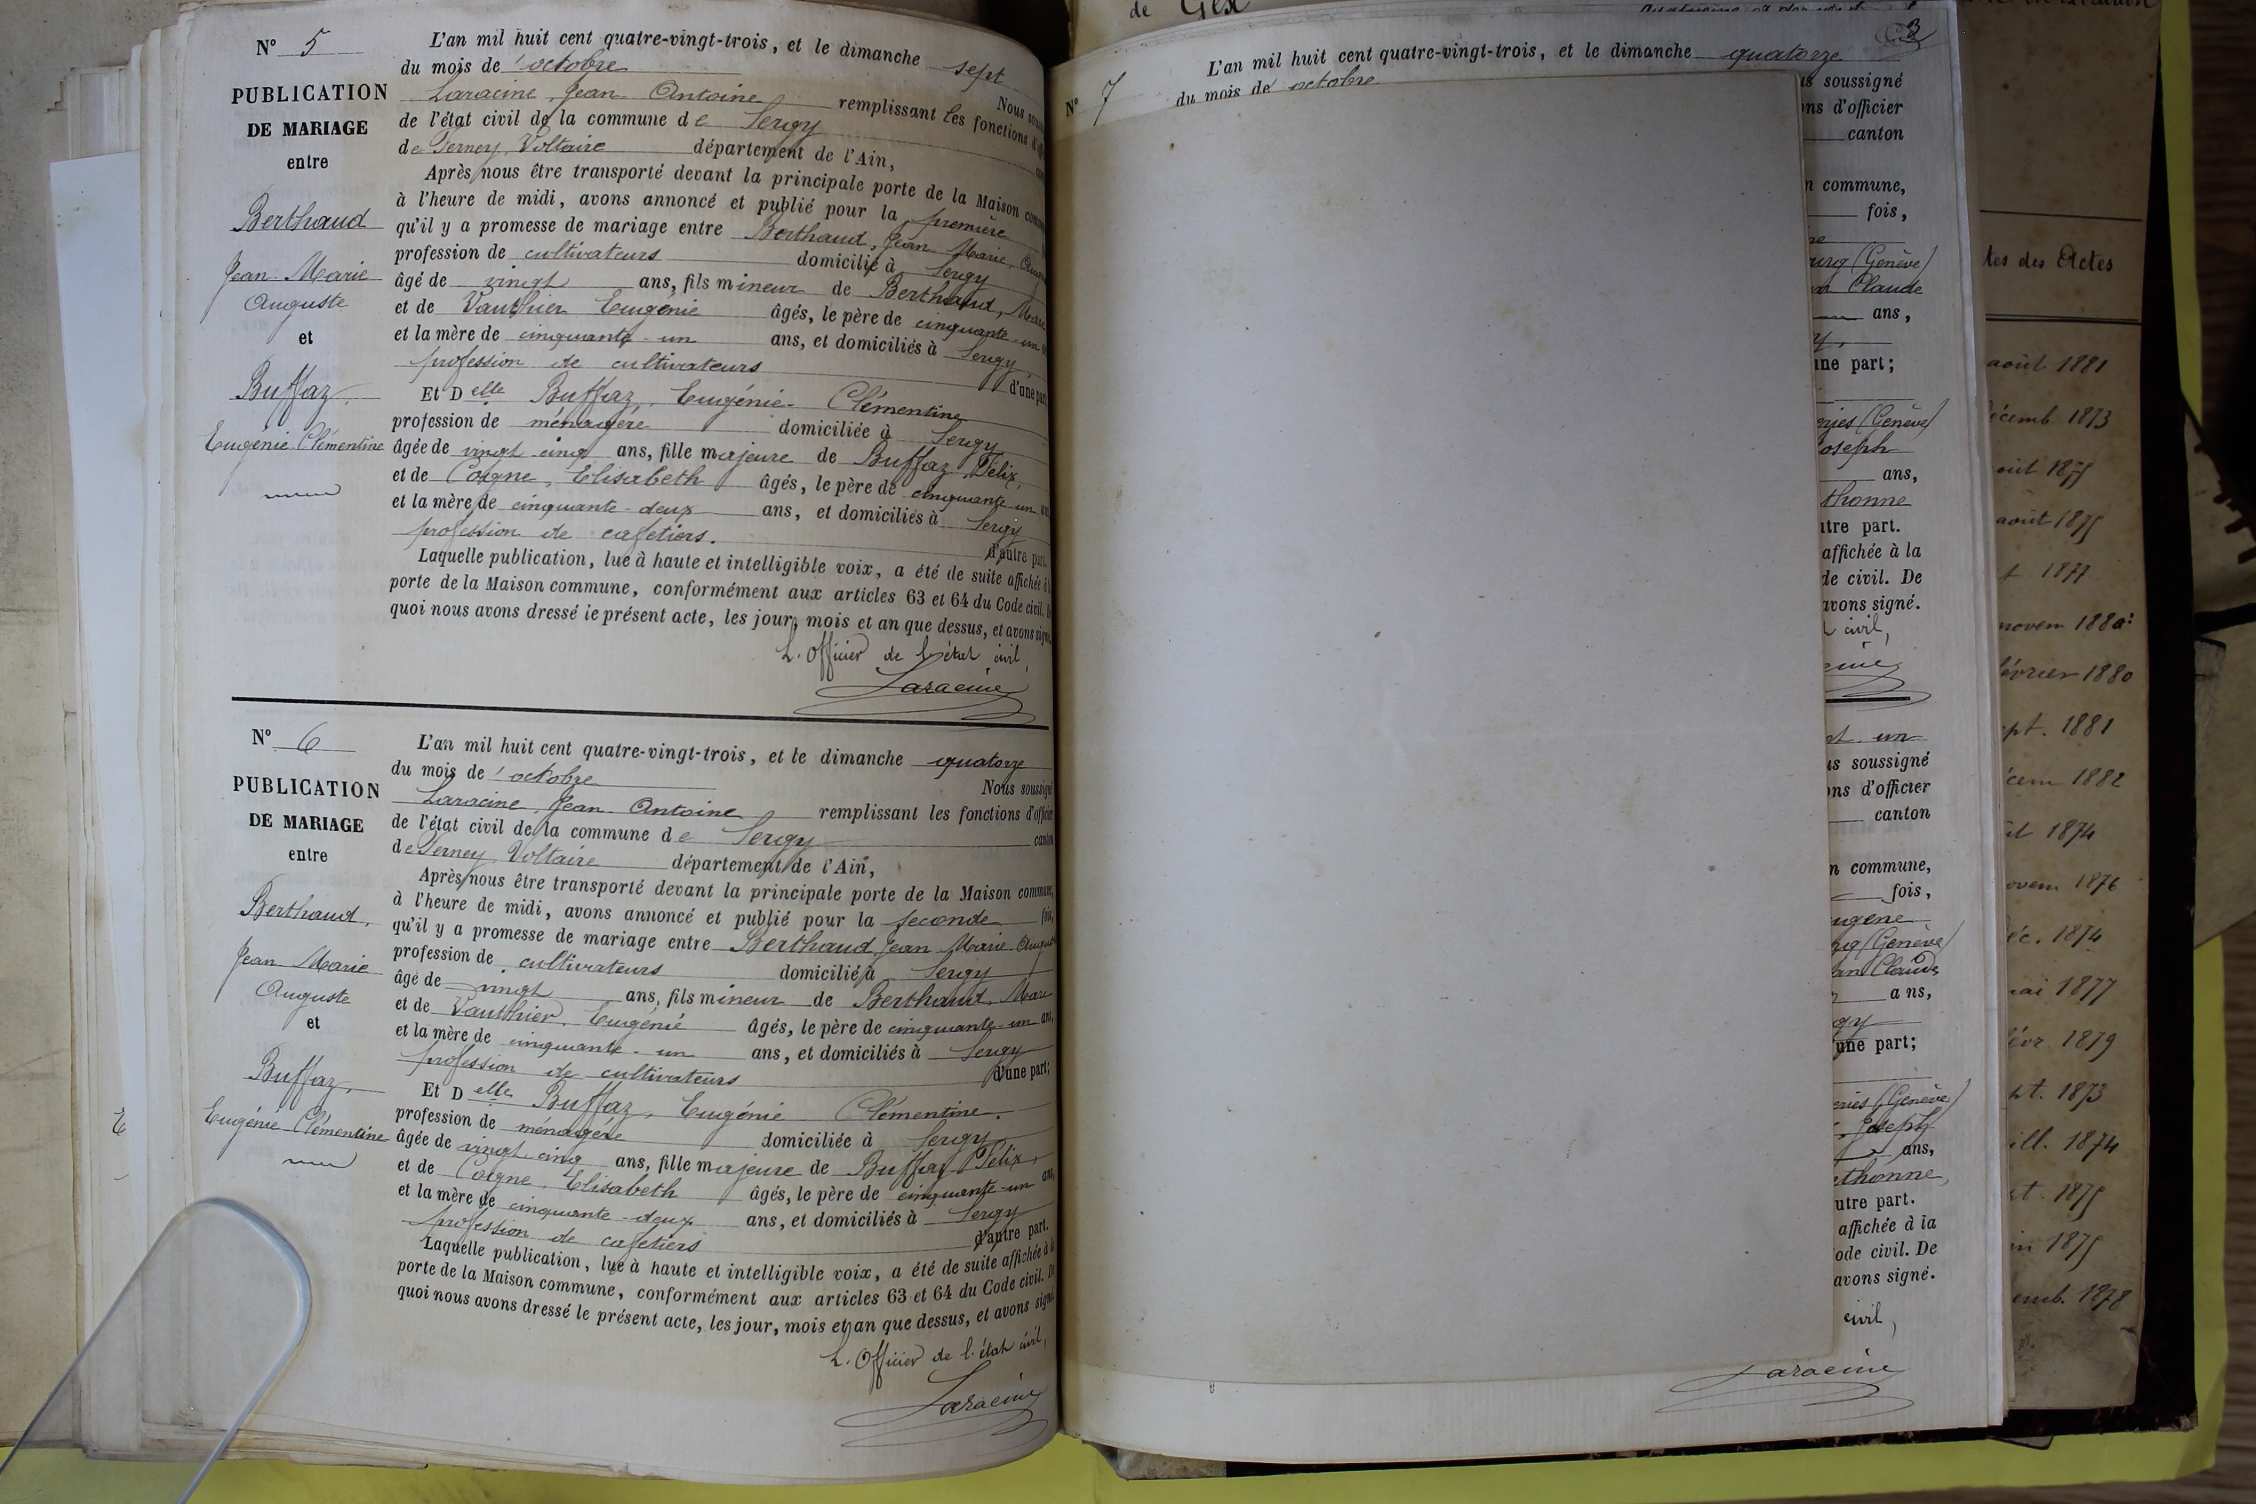 N° 5
PUBLICATION
DE MARIAGE
entre
Berthaud
Jean Marie
Auguste
et
Buffaz
Eugénie Clémentine
L'an mil huit cent quatre-vingt-trois, et le dimanche sept
du mois de octobre Nous
Laracine Jean Antoine remplissant les fonctions
de l'état civil de la commune de Sergy
de Ferney Voltaire département de l'Ain,
Après nous être transporté devant la principale porte de la Maison
à l'heure de midi, avons annoncé et publié pour la première
qu'il y a promesse de mariage entre Berthaud, Jean Marie
profession de cultivateurs domicilié à Sergy
âgé de vingt ans, fils mineur de Berthaud, Marc
et de Vauthier Eugénie âgés, le père de cinquante-un
et la mère de cinquante-un ans, et domiciliés à Sergy
profession de cultivateurs d'une part
Et Delle Buffaz, Eugénie-Clémentine
profession de ménagère domiciliée à Sergy
âgée de vingt cinq ans, fille majeure de Buffaz Félix,
et de Coigne, Elisabeth âgés, le père de cinquante-un
et la mère de cinquante-deux ans, et domiciliés à Sergy
profession de cafetiers. d'autre part.
Laquelle publication, lue à haute et intelligible voix, a été de suite affichée à
porte de la Maison commune, conformément aux articles 63 et 64 du Code civil.
quoi nous avons dressé le présent acte, les jour, mois et an que dessus, et avons signé.
L'Officier de l'état civil,
Laracine
N° 6
PUBLICATION
DE MARIAGE
entre
Berthaud,
Jean Marie
Auguste
et
Buffaz,
Eugénie Clémentine
L'an mil huit cent quatre-vingt-trois, et le dimanche quatorze
du mois de octobre Nous soussigné
Laracine Jean Antoine remplissant les fonctions d'officier
de l'état civil de la commune de Sergy canton
de Ferney Voltaire département de l'Ain,
Après nous être transporté devant la principale porte de la Maison commune,
à l'heure de midi, avons annoncé et publié pour la seconde fois,
qu'il y a promesse de mariage entre Berthaud Jean Marie
profession de cultivateurs domicilié à Sergy
âgé de vingt ans, fils mineur de Berthaud, Marc
et de Vauthier, Eugénie âgés, le père de cinquante-un ans,
et la mère de cinquante-un ans, et domiciliés à Sergy
profession de cultivateurs d'une part;
Et Delle Buffaz, Eugénie Clémentine.
profession de ménagère domiciliée à Sergy
âgée de vingt cinq ans, fille majeure de Buffaz Félix,
et de Coigne, Elisabeth âgés, le père de cinquante-un ans,
et la mère de cinquante-deux ans, et domiciliés à Sergy
profession de cafetiers d'autre part.
Laquelle publication, lue à haute et intelligible voix, a été de suite affichée à
porte de la Maison commune, conformément aux articles 63 et 64 du Code civil.
quoi nous avons dressé le présent acte, les jour, mois et an que dessus, et avons signé
L'Officier de l'état civil,
Laracine
de Gex
3
N° 7
L'an mil huit cent quatre-vingt-trois, et le dimanche quatorze
du mois de octobre
soussigné
d'officier
canton
commune,
fois,
(Genève)
Claude
ans,
une part;
(Genève)
Joseph
ans,
part.
affichée à la
civil. De
avons signé.
civil,
un
soussigné
d'officier
canton
commune,
fois,
(Genève)
Claude
ans,
une part;
(Genève)
Joseph
ans,
part.
affichée à la
civil. De
avons signé.
civil,
Laracine
des Actes
août 1881
1873
1875
août 1875
1877
novem 1880
février 1880
1881
1882
1874
1876
1874
1877
1879
1873
1874
1875
1875
1878